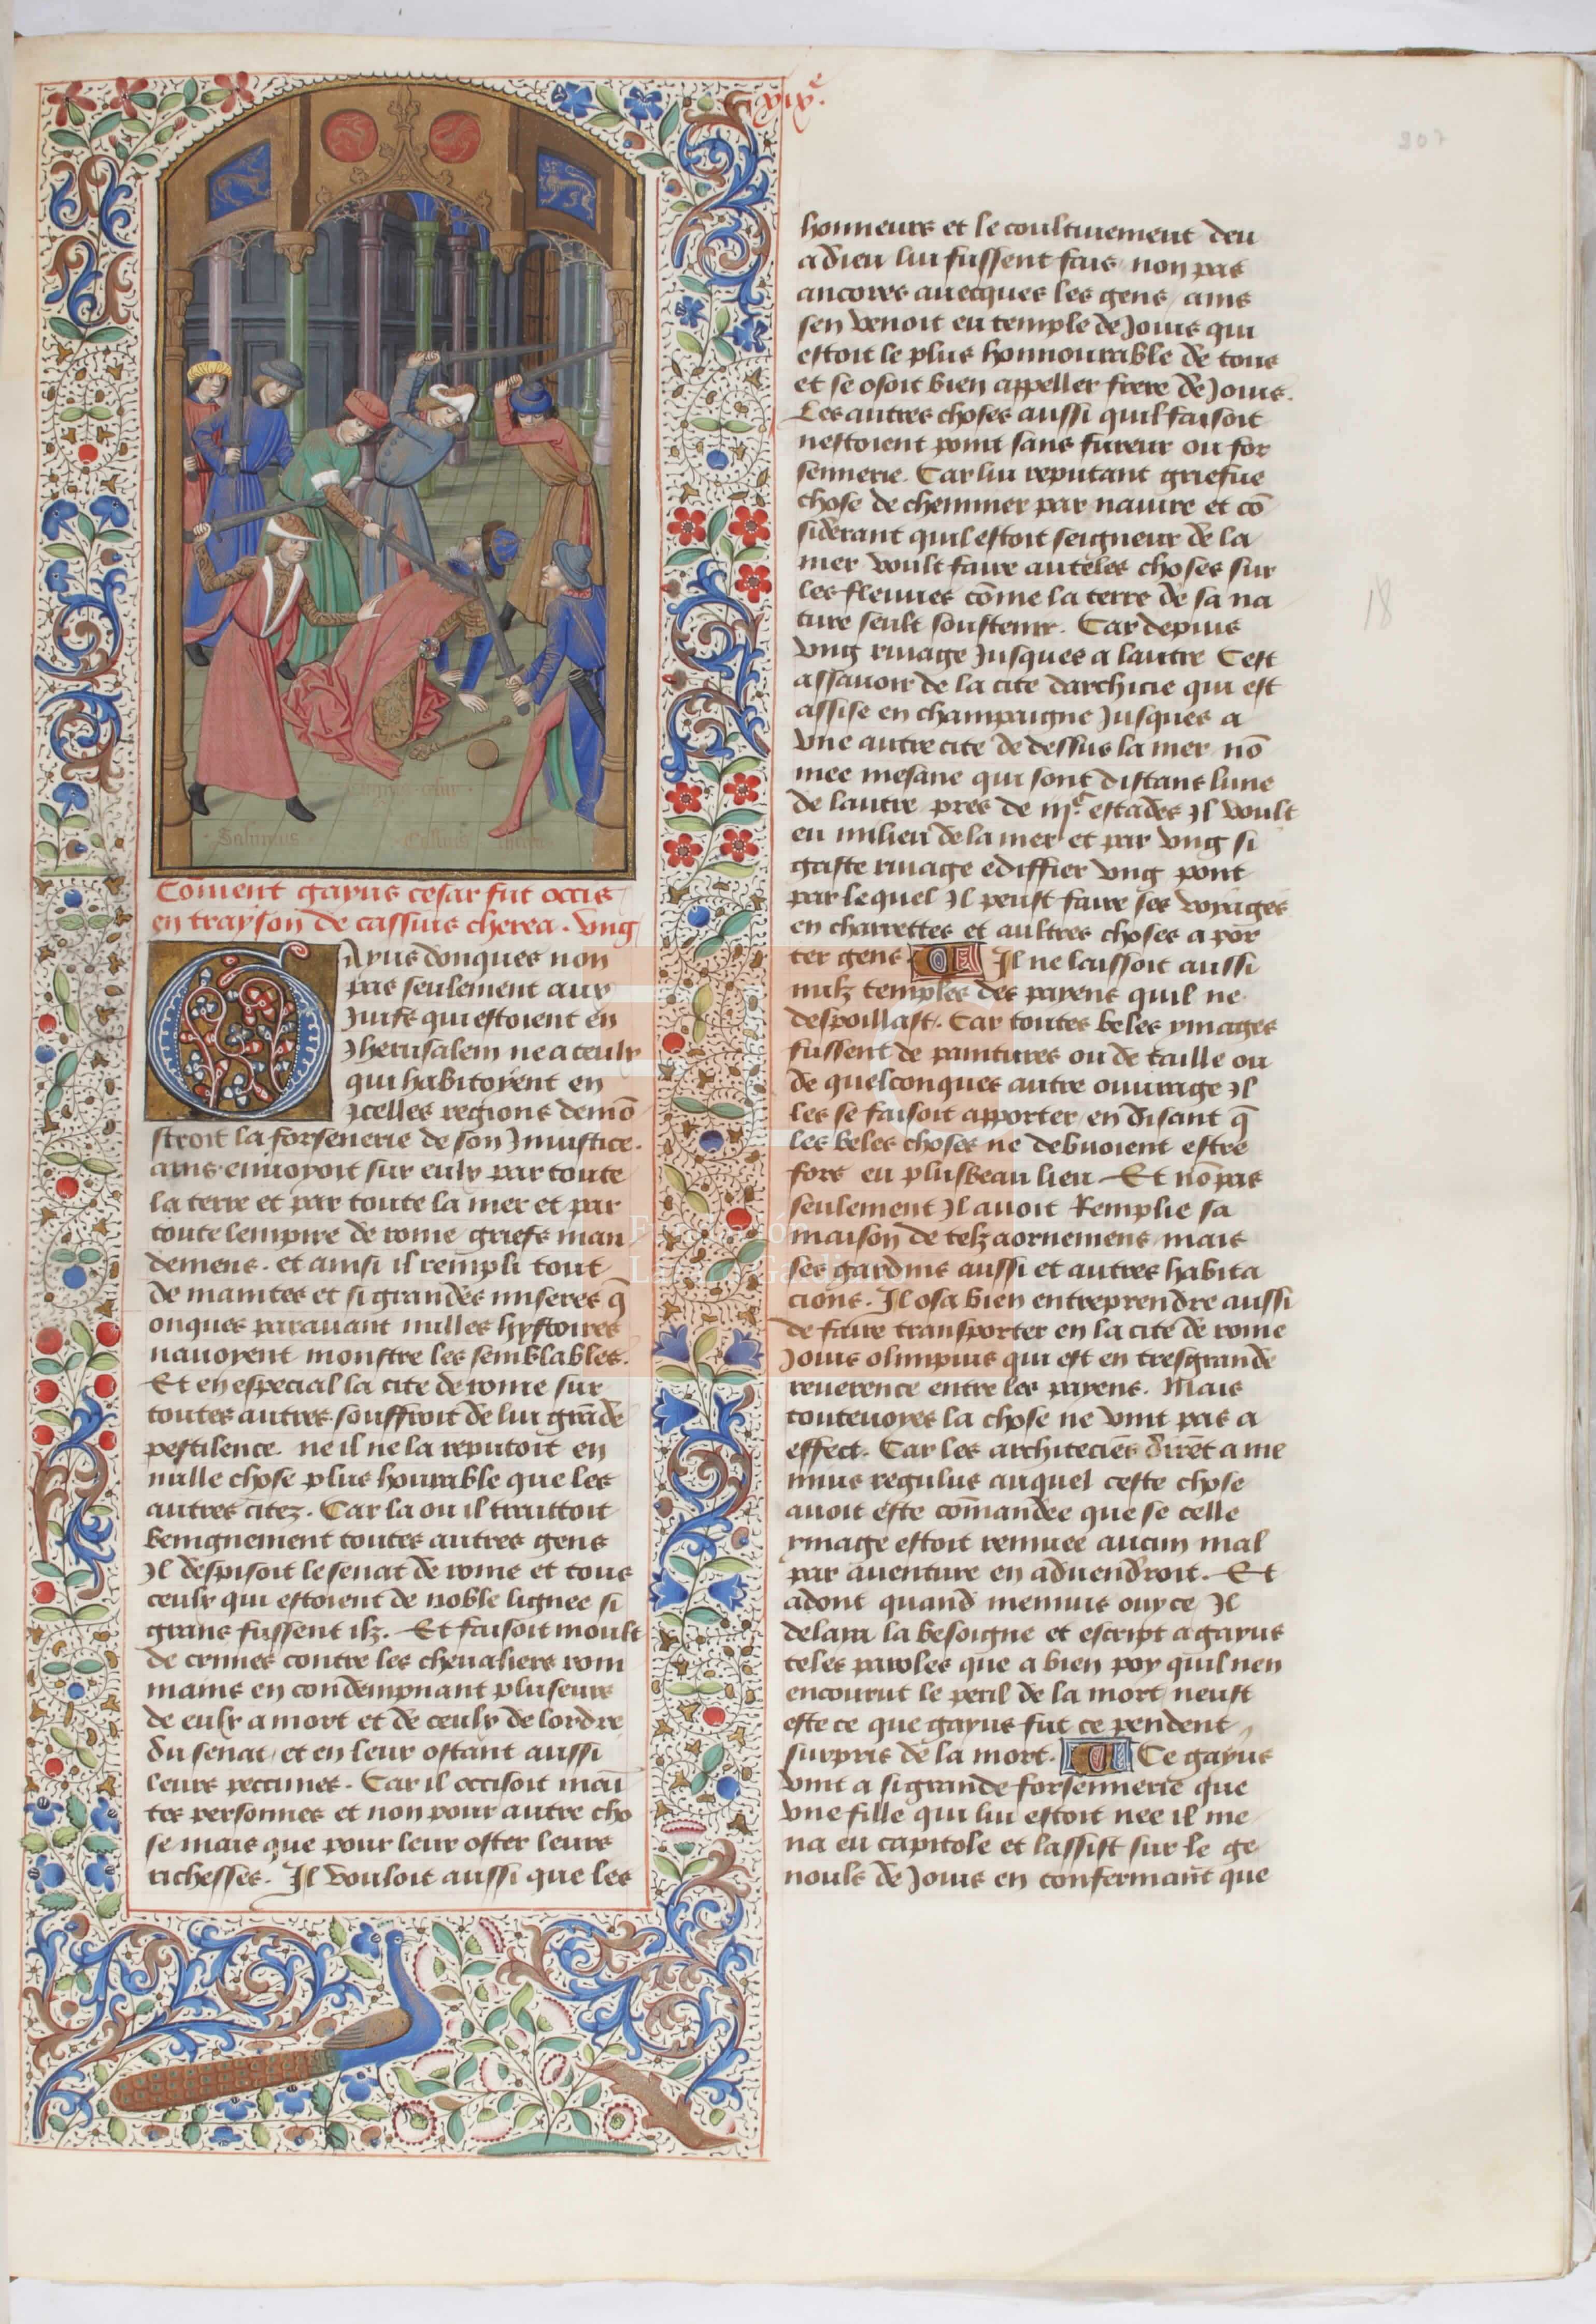 xixe.
207
18
Sabinus
Cassius cherea
Coment gayus cesar fut occis
en trayson de cassius cherea. Ung
Gayus donques non
pas seulement aux
Juifs qui estoient en
Jherusalem ne a ceulx
qui habitoyent en
Jcelles regions demō
stroit la forsenerie de son Jniustice.
ains enuoyoit sur eulx par toute
la terre et par toute la mer et par
toute lempire de rome griefs man
demens. et ainsi il rempli tout
de maintes et si grandes miseres q̄
onques parauant nulles hystoires
nauoyent monstre les semblables.
Et en especial la cite de rome sur
toutes autres souffroit de lui grāde
pestilence. ne il ne la reputoit en
nulle chose plus hourable que les
autres citez. Car la ou il traittoit
benignement toutes autres gens
Jl despisoit le senat de rome et tous
ceulx qui estoient de noble lignee si
grans fussent ilz. Et faisoit moult
de crimes contre les cheualiers rom
mains en condempnant pluseurs
de eulx a mort et de ceulx de lordre
du senat et en leur ostant aussi
leurs peccunes. Car il occisoit mai
tes personnes et non pour autre cho
se mais que pour leur oster leurs
richesses. Jl vouloit aussi que les
honneurs et le coultiuement deu
a dieu lui fussent fais non pas
ancores auecques les gens ains
sen venoit eu temple de Jouis qui
estoit le plus honnourable de tous
et se osoit bien appeller frere de Jouis.
Les autres choses aussi quil faisoit
nestoient point sans fureur ou for
sennerie. Car lui reputant griefue
chose de cheminer par nauire et cō
siderant quil estoit seigneur de la
mer voult faire auteles choses sur
les fleuues cōme la terre de sa na
ture seult soustenir. Car depuis
vng riuage Jusques a lautre Cest
assauoir de la cite darchicie qui est
assise en champaigne Jusques a
vne autre cite de dessus la mer nō
mee mesane qui sont distans lune
de lautre pres de iijc. estades Jl voult
eu milieu de la mer et par vng si
gaste riuage ediffier vng pont
par lequel Jl peust faire ses voyages
en charrettes et aultres choses a por
ter gens. Jl ne laissoit aussi
nulz temples des payens quil ne
despoillast. Car toutes beles ymages
fussent de paintures ou de taille ou
de quelconques autre ouurage Jl
les se faisoit apporter en disant q̄
les beles choses ne debuoient estre
fors eu plusbeau lieu. Et nō pas
seulement Jl auoit Remplie sa
maison de telz aornemens mais
ses gardins aussi et autres habita
cions. Jl osa bien entreprendre aussi
de faire transporter en la cite de rome
Jouis olimpius qui est en tresgrande
reuerence entre les payens. Mais
toutevoyes la chose ne vint pas a
effect. Car les architeciēs dirēt a me
mius regulus auquel ceste chose
auoit este cōmandee que se celle
ymage estoit remuee aucun mal
par auenture en aduendroit. Et
adont quand memius ouy ce Jl
delaya la besoigne et escript a gayus
teles paroles que a bien poy quil nen
encourut le peril de la mort neust
este ce que gayus fut ce pendent
surpris de la mort. Ce gayus
vint a si grande forsennerie que
vne fille qui lui estoit nee il me
na eu capitole et lassist sur le ge
nouls de Jouis en confermant que